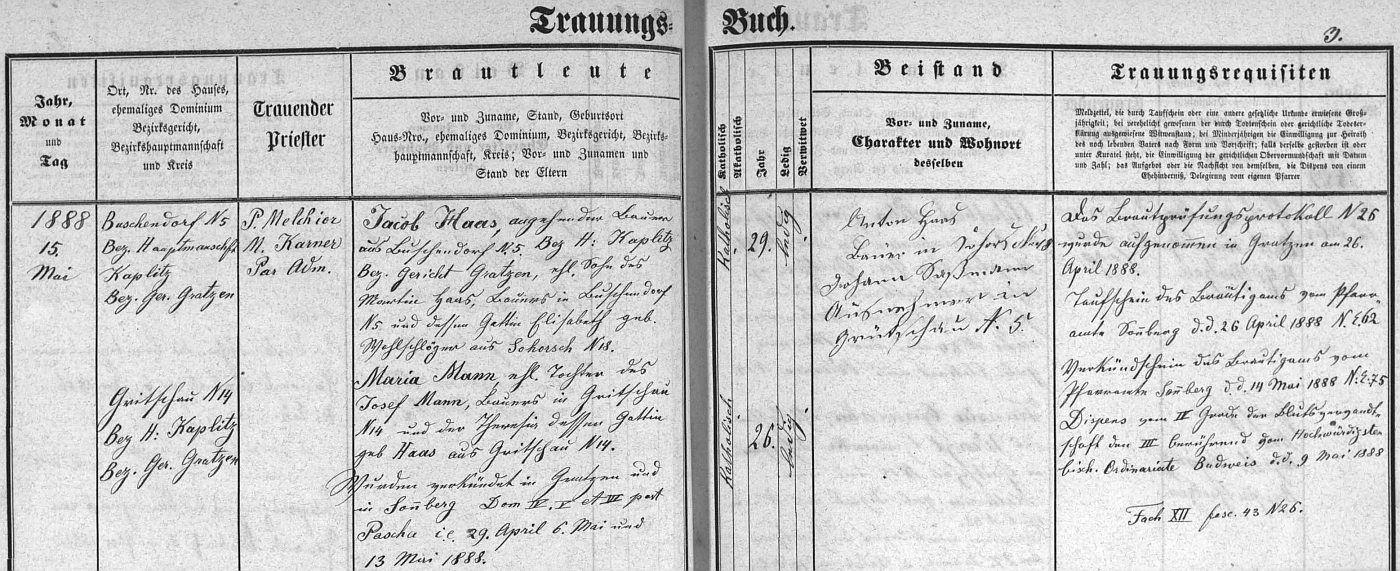 Trauungs-Buch.
3.
Jahr,
Monat
und
Tag
Ort, Nr. des Hauses,
ehemaliges Dominium
Bezirksgericht,
Bezirkshauptmannschaft
und Kreis
Trauender
Priester
Brautleute
Vor- und Zuname, Stand, Geburtsort
Haus-Nro., ehemaliges Dominium, Bezirksgericht, Bezirks-
hauptmannschaft, Kreis; Vor- und Zunamen und
Stand der Eltern
Katholisch
Akatholisch
Jahr
Ledig
Verwitwet
Beistand
Vor- und Zuname,
Charakter und Wohnort
desselben
Trauungsrequisiten
Meldzettel, die durch Taufschein oder eine andere gesetzliche Urkunde erwiesene Groß-
jährigkeit; bei verehelicht gewesenen der durch Todtenschein oder gerichtliche Todeser-
klärung ausgewiesene Witwenstand; bei Minderjährigen die Einwilligung zur Heirath
des noch lebenden Vaters nach Form und Vorschrift; falls derselbe gestorben ist oder
unter Kuratel steht, die Einwilligung der gerichtlichen Obervormundschaft mit Datum
und Zahl; das Aufgebot oder die Nachsicht von demselben, die Dispens von einem
Ehehinderniß, Delegirung vom eigenen Pfarrer
1888
15.
Mai
Buschendorf N5
Bez. Hauptmanschft
Kaplitz
Bez. Ger. Gratzen
Gritschau N14
Bez H: Kaplitz
Bez. Ger. Gratzen
P. Melchior
M. Karner
Par Adm.
Jacob Haas, angehender Bauer
aus Buschendorf N.5. Bez H: Kaplitz
Bez. Gericht Gratzen, ehl. Sohn des
Martin Haas, Bauers in Buschendorf
N5 und dessen Gattin Elisabeth geb.
Wohlschläger aus Sohorsch N18.
Maria Mann, ehl. Tochter des
Josef Mann, Bauers in Gritschau
N14 und der Theresia dessen Gattin
geb Haas aus Gritschau N14.
Wurden verkündet in Gratzen und
in Soñberg Dom IV. V et VI post
Pascha i.e. 29. April 6. Mai und
13 Mai 1888.
Katholisch
29.
ledig
Katholisch
26.
ledig
Anton Haas
Bauer in
Johann Saßmann
Ausnehmer in
Gritschau N. 5.
Das Brautprüfungsprotokoll N 26
wurde aufgenommen in Gratzen am 26.
April 1888.
Taufschein des Bräutigams vom Pfarr-
amte Soñberg d.d. 26 April 1888 N.E.62
Verkündschein des Brautigams vom
Pfarramte Soñberg d.d. 14 Mai 1888 N:E:75
Dispens vom IV Grade der Blutsverwandt-
schaft den III berührend vom Hochwürdigsten
bisch. Ordinariate Budweis d.d. 9 Mai 1888
Fach XII fasc. 43 N26.